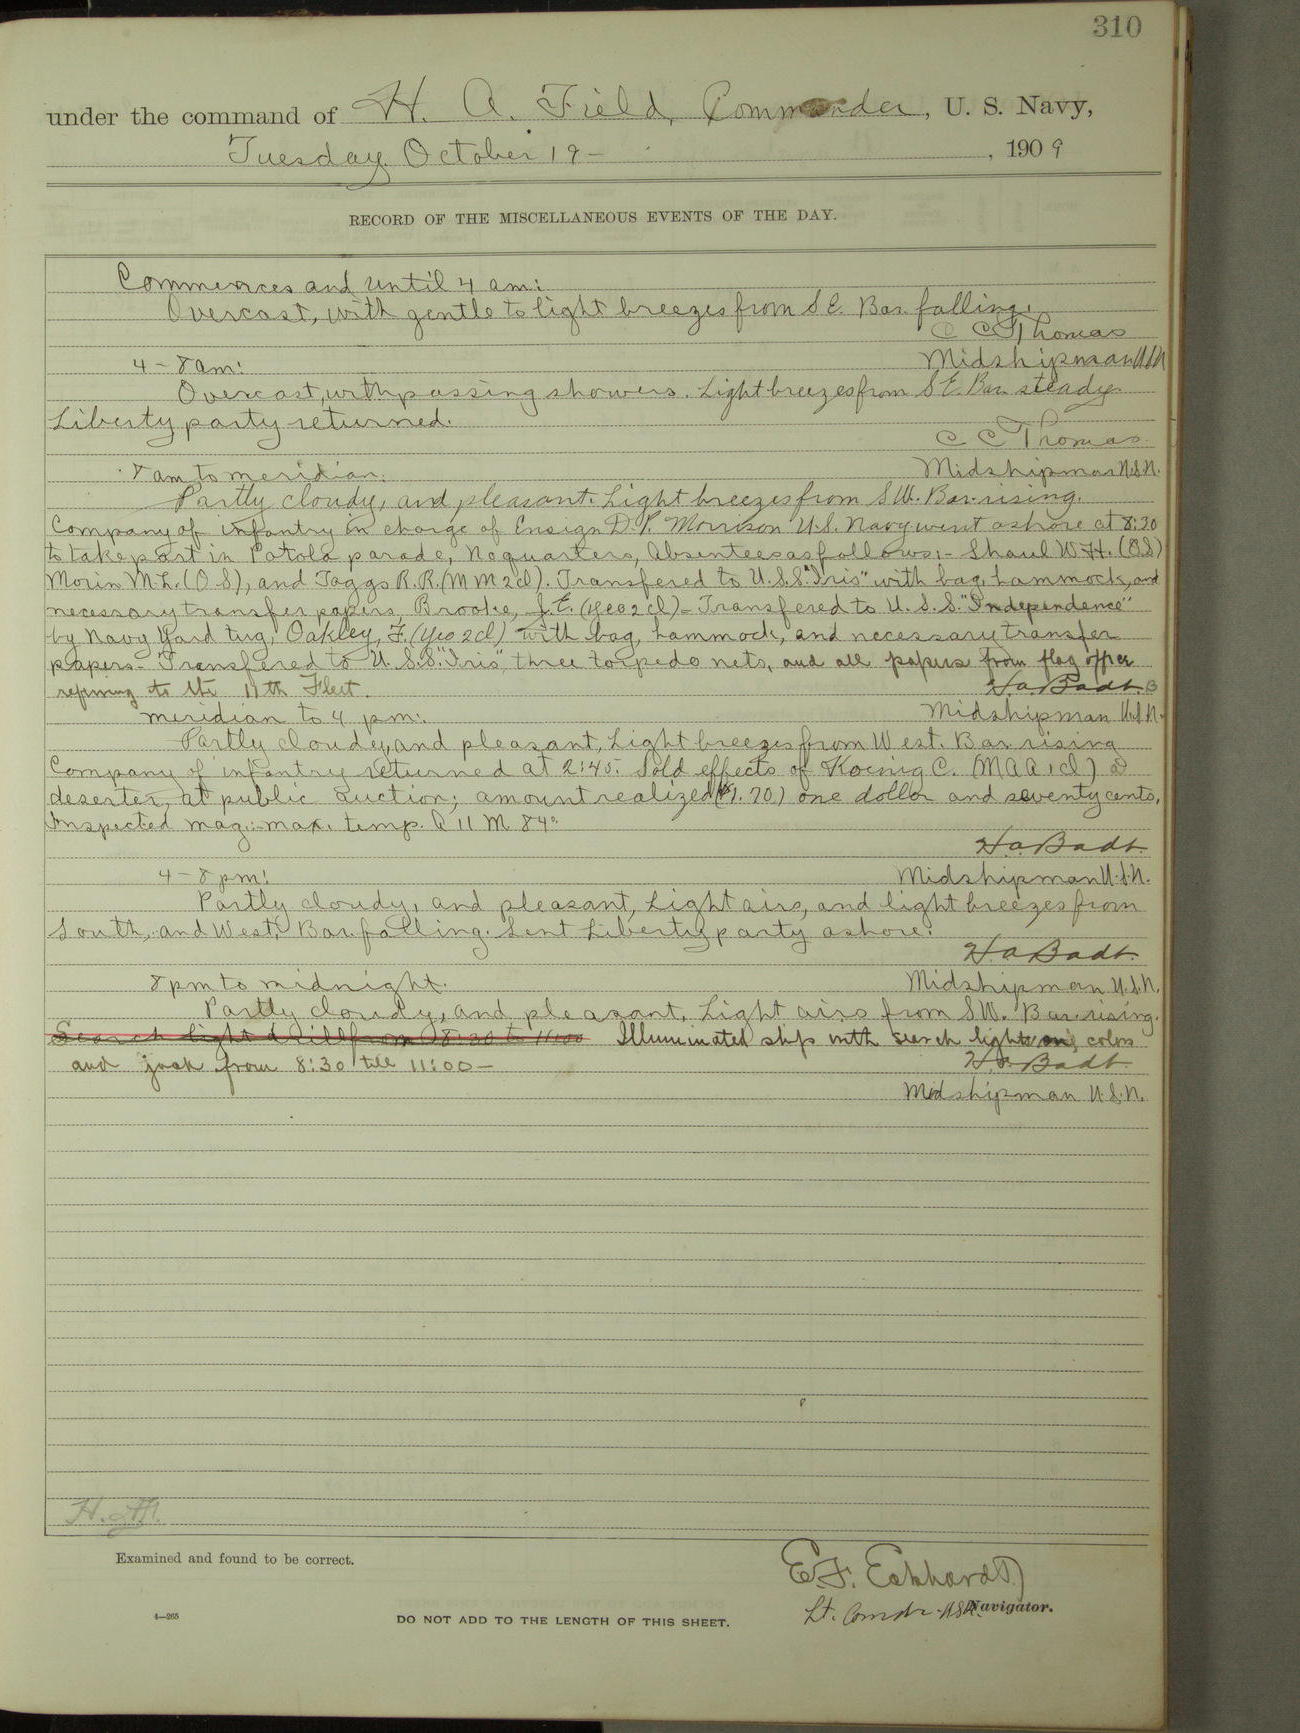 310
under the command of H. A. Field, Commander, U. S. Navy,
Tuesday October 19 - , 1909
RECORD OF THE MISCELLANEOUS EVENTS OF THE DAY.
Commences and until 4 am:
Overcast, with gentle to light breezes from S E. Bar. falling.
C C Thomas
4 - 8 am: Midshipman U.S.N
Overcast, with passing showers. Light breezes from S E. Bar. steady
Liberty party returned.
C C Thomas
8 am to meridian: Midshipman U.S.N.
Partly cloudy, and pleasant. Light breezes from S W. Bar. rising.
Company of infantry in charge of Ensign D. P. Morrison U.S. Navy went ashore at 8:20
to take part in Patola parade, No quarters, Absentees as follows:- Shaul W.H. (O.S)
Morin M.L. (O S), and Taggs R.R. (M M 2cl). Transfered to U.S.S. "Iris" with bag, hammock, and
necessary transfer papers, Brooke, J.E. (Yeo 2 cl) - Transfered to U. S. S. "Independence"
by Navy Yard tug, Oakley, F. (Yeo 2cl) with bag, hammock, and necessary transfer
papers - Transfered to U. S.S. "Iris" three torpedo nets, and all papers from flag office
referring to the 11th Fleet.
H.a. Badt.
meridian to 4 pm: Midshipman U.S.N.
Partly cloudy, and pleasant, Light breezes from West. Bar. rising
Company of infantry returned at 2:45. Sold effects of Koenig C. (M A A 1 cl) a
deserter, at public auction; amount realized ($1.70) one dollar and seventy cents,
Inspected mag: max. temp. A 11 M 84°
H.a. Badt.
4 - 8 pm: Midshipman U.S.N.
Partly cloudy, and pleasant, Light airs, and light breezes from
South, and West, Bar. falling. Sent Liberty party ashore.
H.a. Badt.
8 pm to midnight. Midshipman U.S.N.
Partly cloudy, and pleasant, Light airs from S W. Bar. rising.
Search light drill from 8:30 to 11:00 Illuminated ship with search lights on colors
and jack from 8:30 till 11:00 -
H.a. Badt.
Midshipman U.S.N.
Examined and found to be correct.
E.F. Eckhardt
Lt. Comdr. USN. Navigator.
4—265
DO NOT ADD TO THE LENGTH OF THIS SHEET.